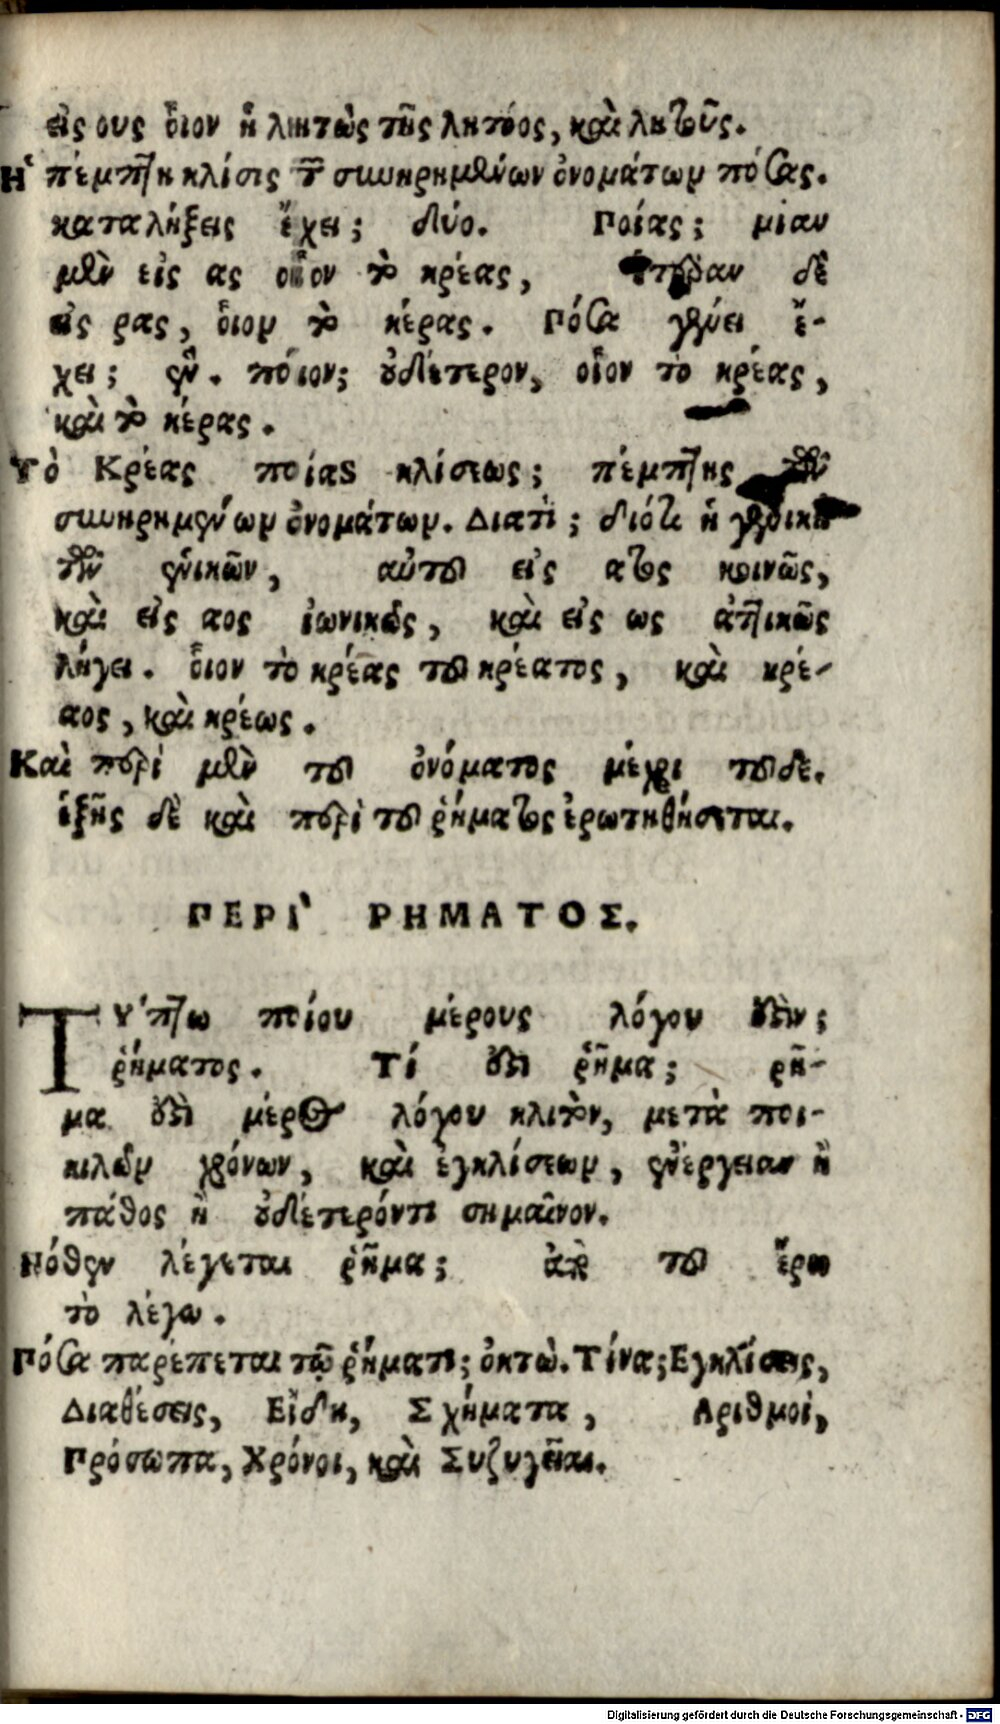 εἰς ους ὅιον ἡ λητὼς τῆς λητόος, καὶ λητοῦς.
Ἡ πέμπτη κλίσις τῶν συνηρημένων ὀνομάτων πόσας.
καταλήξεις ἔχει; δύο. Ποίας; μίαν
μὲν εἰς ας οἷον τὸ κρέας, ἑτέραν δὲ
εἰς ρας, ὅιον τὸ κέρας. Πόσα γένει ἔ-
χει; ἕν. πόιον; ὀυδέτερον, οἷον τὸ κρέας,
καὶ τὸ κέρας.
Τὸ Κρέας ποίας κλίσεως; πέμπτης τῶν
συνηρημένων ὀνομάτων. Διατὶ; διότι ἡ γενικὴ
τῶν ἑνικῶν, αὐτοῦ εἰς ατος κοινῶς,
καὶ εἰς αος ἰωνικῶς, καὶ εἰς ως ἀττικῶς
λήγει. ὅιον τὸ κρέας τοῦ κρέατος, καὶ κρέ-
αος, καὶ κρέως.
Καὶ περὶ μὲν τοῦ ὀνόματος μέχρι τοῦδε.
ἑξῆς δὲ καὶ περὶ τοῦ ῥήματος ἐρωτηθήσεται.
ΠΕΡΙ` ΡΗΜΑΤΟΣ.
ΤΥ´πτω ποίου μέρους λόγου ἐστὶν;
ῥήματος. Τί ἐστὶ ῥῆμα; ρῆ-
μα ἐστὶ μέρος λόγου κλιτὸν, μετὰ ποι-
κιλῶν χρόνων, καὶ ἐγκλίσεων, ἐνέργειαν ἢ
πάθος ἢ ὀυδέτερόντι σημαῖνον.
Πόθεν λέγεται ῥῆμα; ἀπὸ τοῦ ἔρω
τὸ λέγω.
Πόσα παρέπεται τῷ ῥήματι; ὀκτὼ. Τίνα; Εγκλίσεις,
Διαθέσεις, Εἴδη, Σχήματα, Αριθμοί,
Πρόσωπα, Χρόνοι, καὶ Συζυγεῖαι.
Digitalisierung gefördert durch die Deutsche Forschungsgemeinschaft - DFG